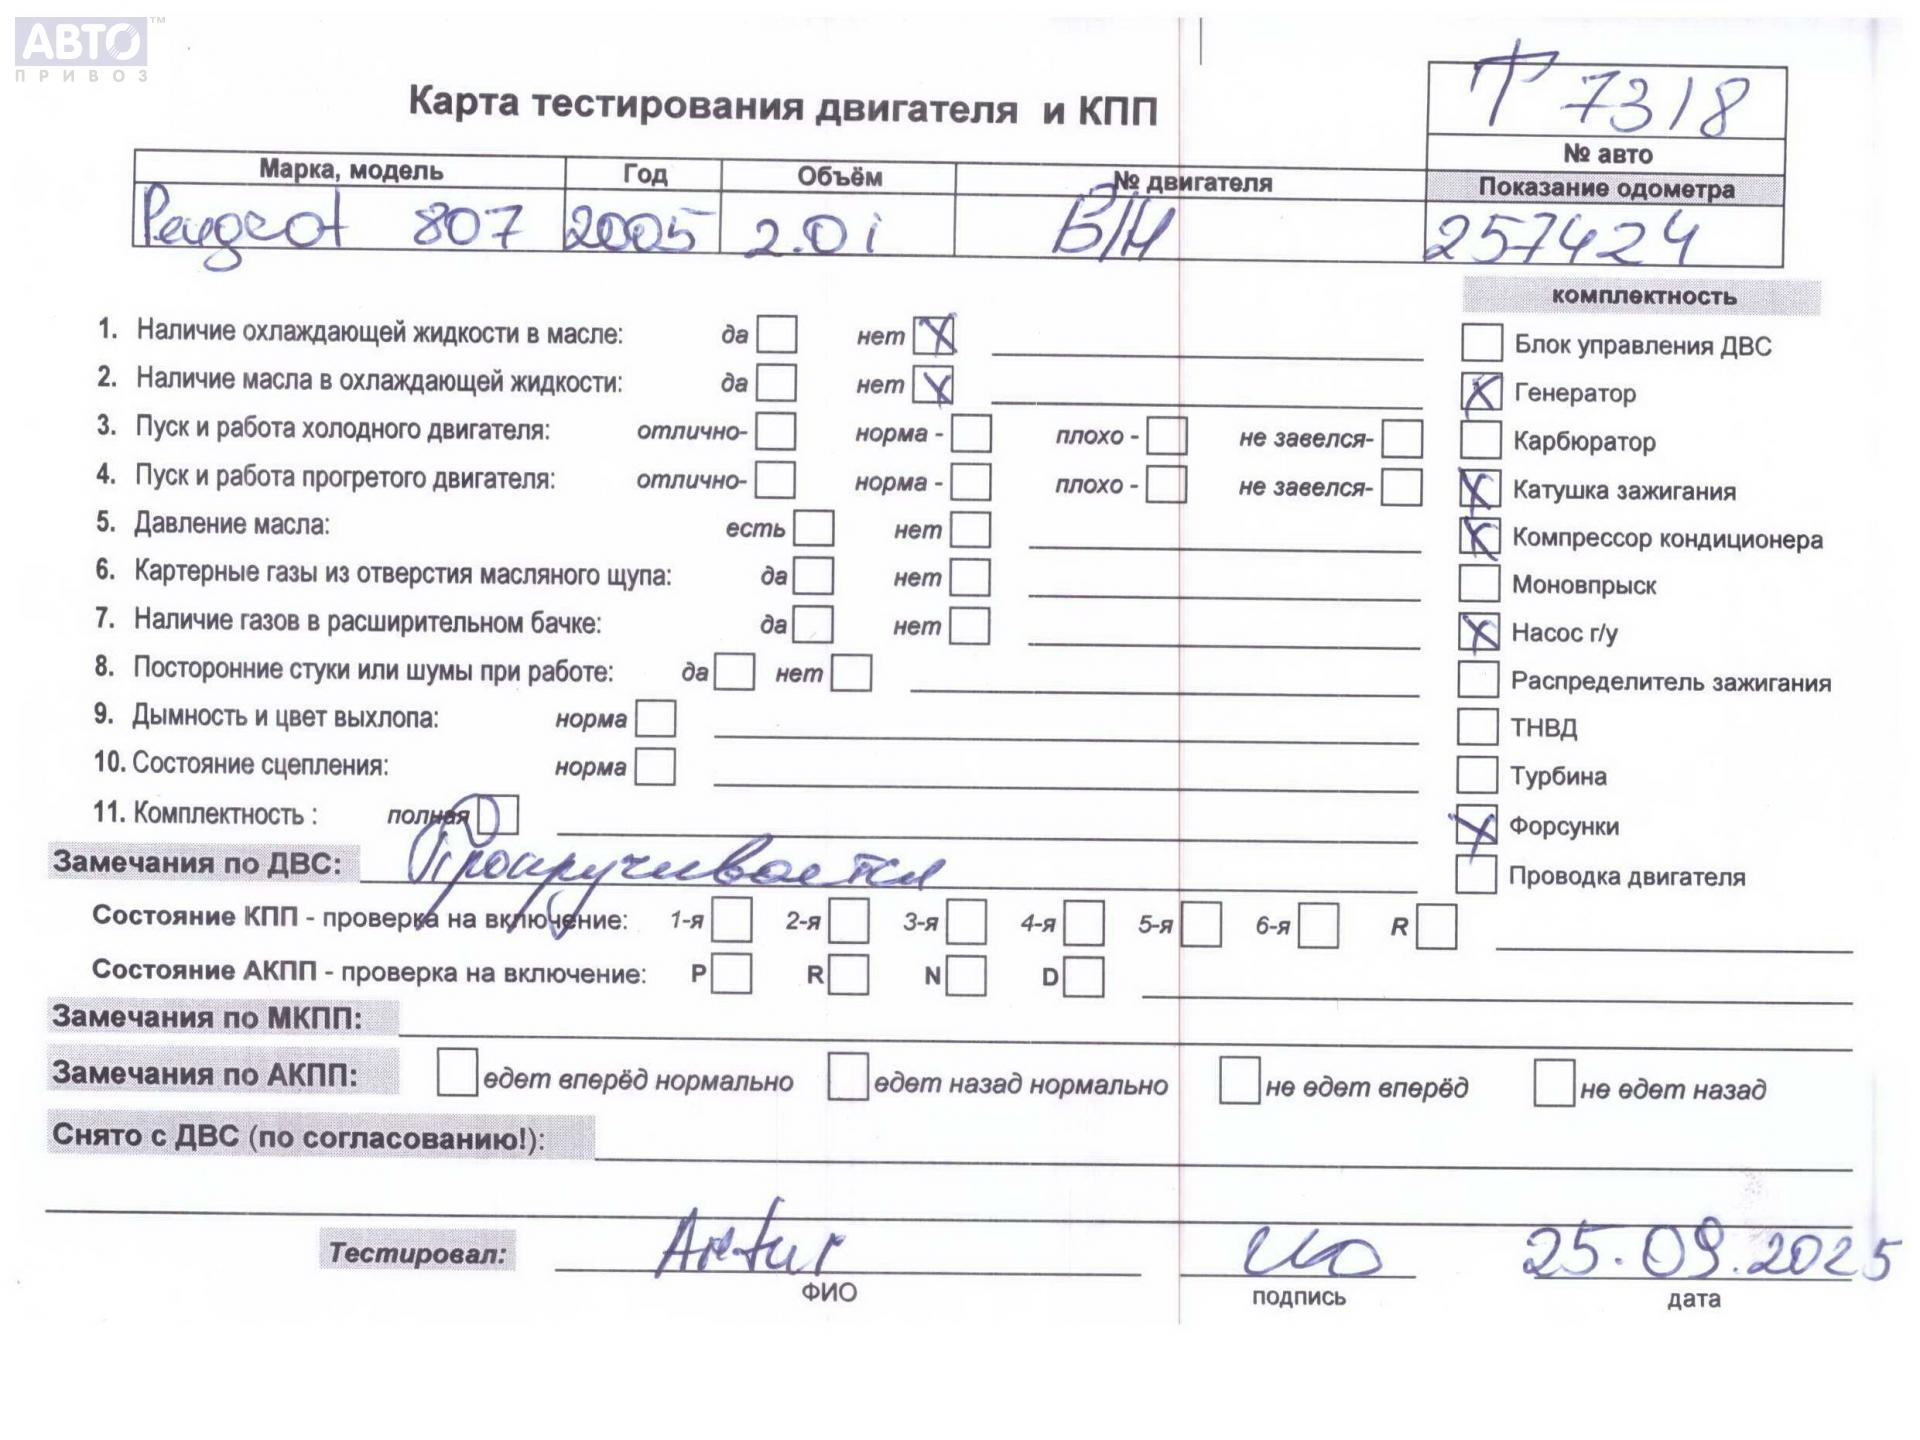 АВТО™
ПРИВОЗ
Карта тестирования двигателя и КПП
Т 7318
№ авто
Марка, модель Год Объём № двигателя Показание одометра
Peugeot 807 2005 2.0i Б/Н 257424
комплектность
1. Наличие охлаждающей жидкости в масле: да нет X
Блок управления ДВС
2. Наличие масла в охлаждающей жидкости: да нет X
X Генератор
3. Пуск и работа холодного двигателя: отлично- норма - плохо - не завелся-
Карбюратор
4. Пуск и работа прогретого двигателя: отлично- норма - плохо - не завелся-
X Катушка зажигания
5. Давление масла: есть нет
X Компрессор кондиционера
6. Картерные газы из отверстия масляного щупа: да нет
Моновпрыск
7. Наличие газов в расширительном бачке: да нет
X Насос г/у
8. Посторонние стуки или шумы при работе: да нет
Распределитель зажигания
9. Дымность и цвет выхлопа: норма
ТНВД
10. Состояние сцепления: норма
Турбина
11. Комплектность : полная
X Форсунки
Замечания по ДВС: Прокручивается
Проводка двигателя
Состояние КПП - проверка на включение: 1-я 2-я 3-я 4-я 5-я 6-я R
Состояние АКПП - проверка на включение: P R N D
Замечания по МКПП:
Замечания по АКПП: едет вперёд нормально едет назад нормально не едет вперёд не едет назад
Снято с ДВС (по согласованию!):
Тестировал: Artur 25.09.2025
ФИО подпись дата